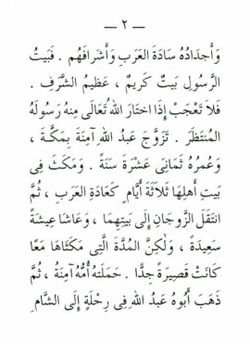 — ٢ —
وَأَجدَادُه سَادَةُ العَرَبِ وَأَشرَافُهُم . فَبَيتُ
الرَّسُولِ بَيتٌ كَرِيمٌ ، عَظِيمُ الشَّرَفِ .
فَلَا تَعجَبْ إِذَا اختَارَ اللهُ تَعَالَى مِنهُ رَسُولَهُ
المُنتَظَرَ . تَزَوَّجَ عَبدُ اللهِ آمِنَةَ بِمَكَّةَ ،
وَعُمرُهُ ثَمَانِىَ عَشْرَةَ سَنَةً . وَمَكَثَ فِى
بَيتِ أَهلِهَا ثَلَاثَةَ أَيَّامٍ كَعَادَةِ العَرَبِ ، ثُمَّ
انتَقَلَ الزَّوجَانِ إِلَى بَيتِهِمَا ، وَعَاشَا عِيشَةً
سَعِيدَةً ، وَلٰكِنَّ المُدَّةَ الَّتِى مَكَثَاهَا مَعًا
كَانَتْ قَصِيرَةً جِدًّا . حَمَلَتهُ أُمُّهُ آمِنَةُ ، ثُمَّ
ذَهَبَ أَبُوهُ عَبدُ اللهِ فِى رِحلَةٍ إِلَى الشَّامِ